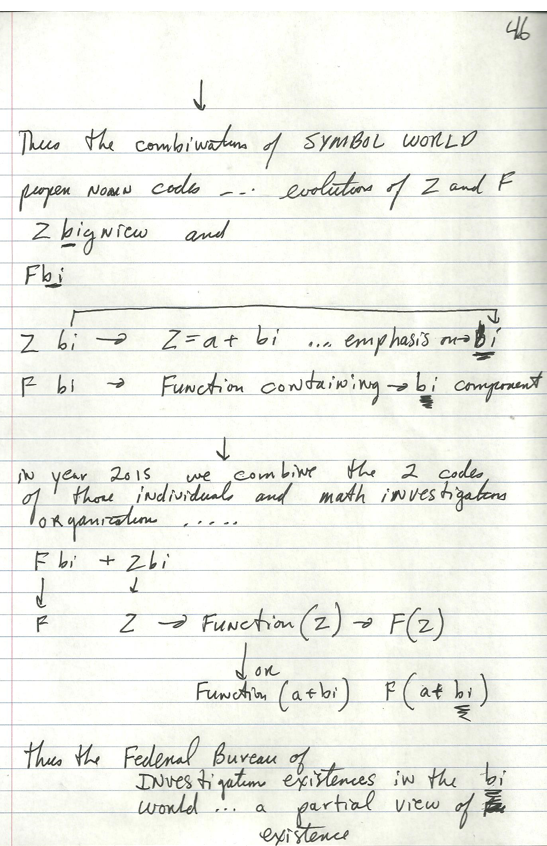 46
↓
Thus the combination of SYMBOL WORLD
proper NOUN codes --.. evolution of Z and F
Z bigniew and
Fbi
Z bi → Z = a + bi .... emphasis on → bi
F bi → Function containing → bi component
↓
in year 2015 we combine the 2 codes
of those individuals and math investigations
organizations .....
F bi + Zbi
↓ ↓
F Z → Function (Z) → F(Z)
↓ or
Function (a+bi) F (a+ bi)
thus the Federal Bureau of
Investigation existences in the bi
world ... a partial view of
existence